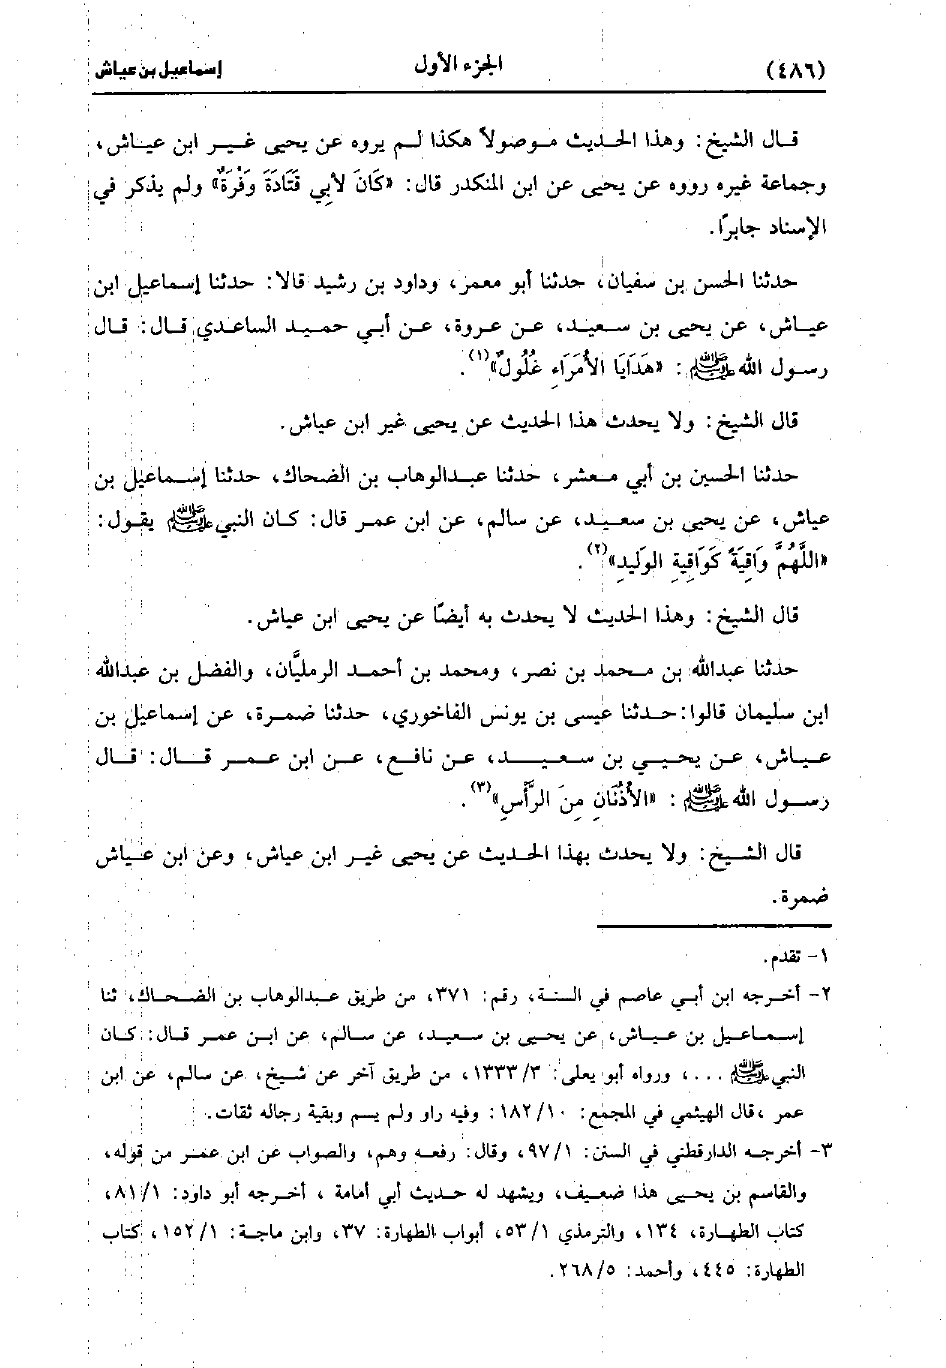 (٤٨٦) الجزء الأول إسماعيل بن عياش
قال الشيخ: وهذا الحديث موصولاً هكذا لم يروه عن يحيى غير ابن عياش،
وجماعة غيره رووه عن يحيى عن ابن المنكدر قال: «كَانَ لأبِي قَتَادَةَ وَفْرَةٌ» ولم يذكر في
الإسناد جابرًا.
حدثنا الحسن بن سفيان، حدثنا أبو معمر، وداود بن رشيد قالا: حدثنا إسماعيل ابن
عياش، عن يحيى بن سعيد، عن عروة، عن أبي حميد الساعدي قال: قال
رسول الله ﷺ: «هَدَايَا الأُمَرَاءِ غُلُولٌ»(١).
قال الشيخ: ولا يحدث هذا الحديث عن يحيى غير ابن عياش.
حدثنا الحسين بن أبي معشر، حدثنا عبدالوهاب بن الضحاك، حدثنا إسماعيل بن
عياش، عن يحيى بن سعيد، عن سالم، عن ابن عمر قال: كان النبي ﷺ يقول:
«اللَّهُمَّ وَاقِيَةً كَوَاقِيةِ الوَلِيدِ»(٢).
قال الشيخ: وهذا الحديث لا يحدث به أيضًا عن يحيى ابن عياش.
حدثنا عبدالله بن محمد بن نصر، ومحمد بن أحمد الرمليَّان، والفضل بن عبدالله
ابن سليمان قالوا: حدثنا عيسى بن يونس الفاخوري، حدثنا ضمرة، عن إسماعيل بن
عياش، عن يحيي بن سعيد، عن نافع، عن ابن عمر قال: قال
رسول الله ﷺ: «الأُذْنَانِ مِنَ الرَّأْسِ»(٣).
قال الشيخ: ولا يحدث بهذا الحديث عن يحيى غير ابن عياش، وعن ابن عياش
ضمرة.
١- تقدم.
٢- أخرجه ابن أبي عاصم في السنة، رقم: ٣٧١، من طريق عبدالوهاب بن الضحاك، ثنا
إسماعيل بن عياش، عن يحيى بن سعيد، عن سالم، عن ابن عمر قال: كان
النبي ﷺ ...، ورواه أبو يعلى: ١٣٣٣/٣، من طريق آخر عن شيخ، عن سالم، عن ابن
عمر ،قال الهيثمي في المجمع: ١٨٢/١٠: وفيه راو ولم يسم وبقية رجاله ثقات.
٣- أخرجه الدارقطني في السنن: ٩٧/١، وقال: رفعه وهم، والصواب عن ابن عمر من قوله،
والقاسم بن يحيى هذا ضعيف، ويشهد له حديث أبي أمامة ، أخرجه أبو داود: ٨١/١،
كتاب الطهارة، ١٣٤، والترمذي ٥٣/١، أبواب الطهارة: ٣٧، وابن ماجة: ١٥٢/١، كتاب
الطهارة: ٤٤٥، وأحمد: ٢٦٨/٥.